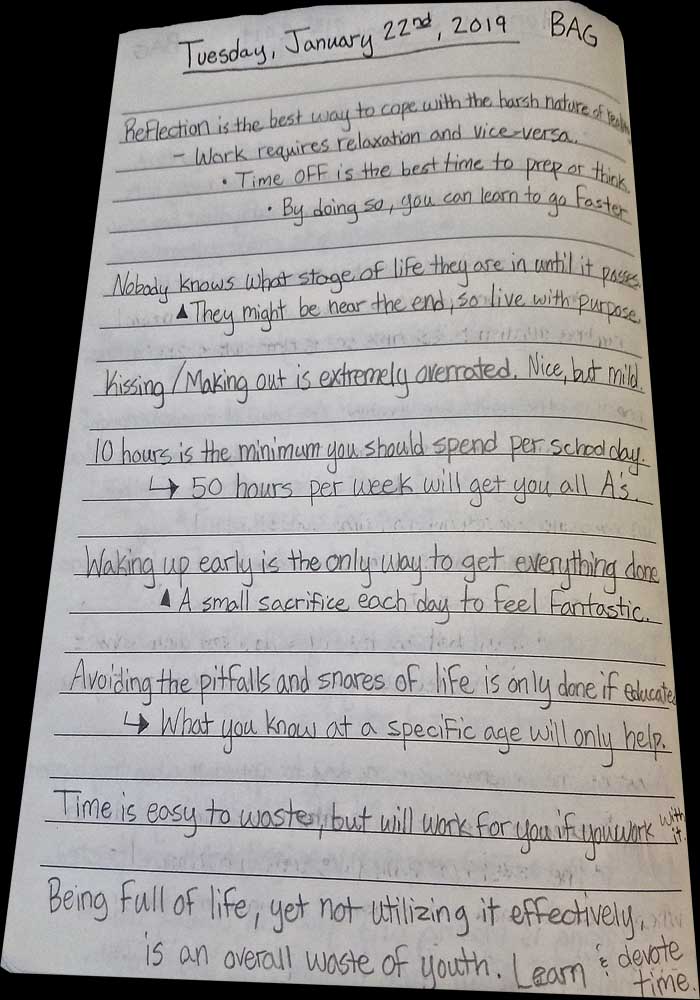 Tuesday, January 22nd, 2019 BAG
Reflection is the best way to cope with the harsh nature of reality
- Work requires relaxation and vice-versa.
• Time off is the best time to prep or think.
• By doing so, you can learn to go faster
Nobody knows what stage of life they are in until it passes.
▲ They might be near the end, so live with purpose.
Kissing / Making out is extremely overrated. Nice, but mild.
10 hours is the minimum you should spend per school day.
↳ 50 hours per week will get you all A's.
Waking up early is the only way to get everything done
▲ A small sacrifice each day to feel fantastic.
Avoiding the pitfalls and snares of life is only done if educated
↳ What you know at a specific age will only help.
Time is easy to waste, but will work for you if you work with it.
Being full of life, yet not utilizing it effectively,
is an overall waste of youth. Learn & devote time.